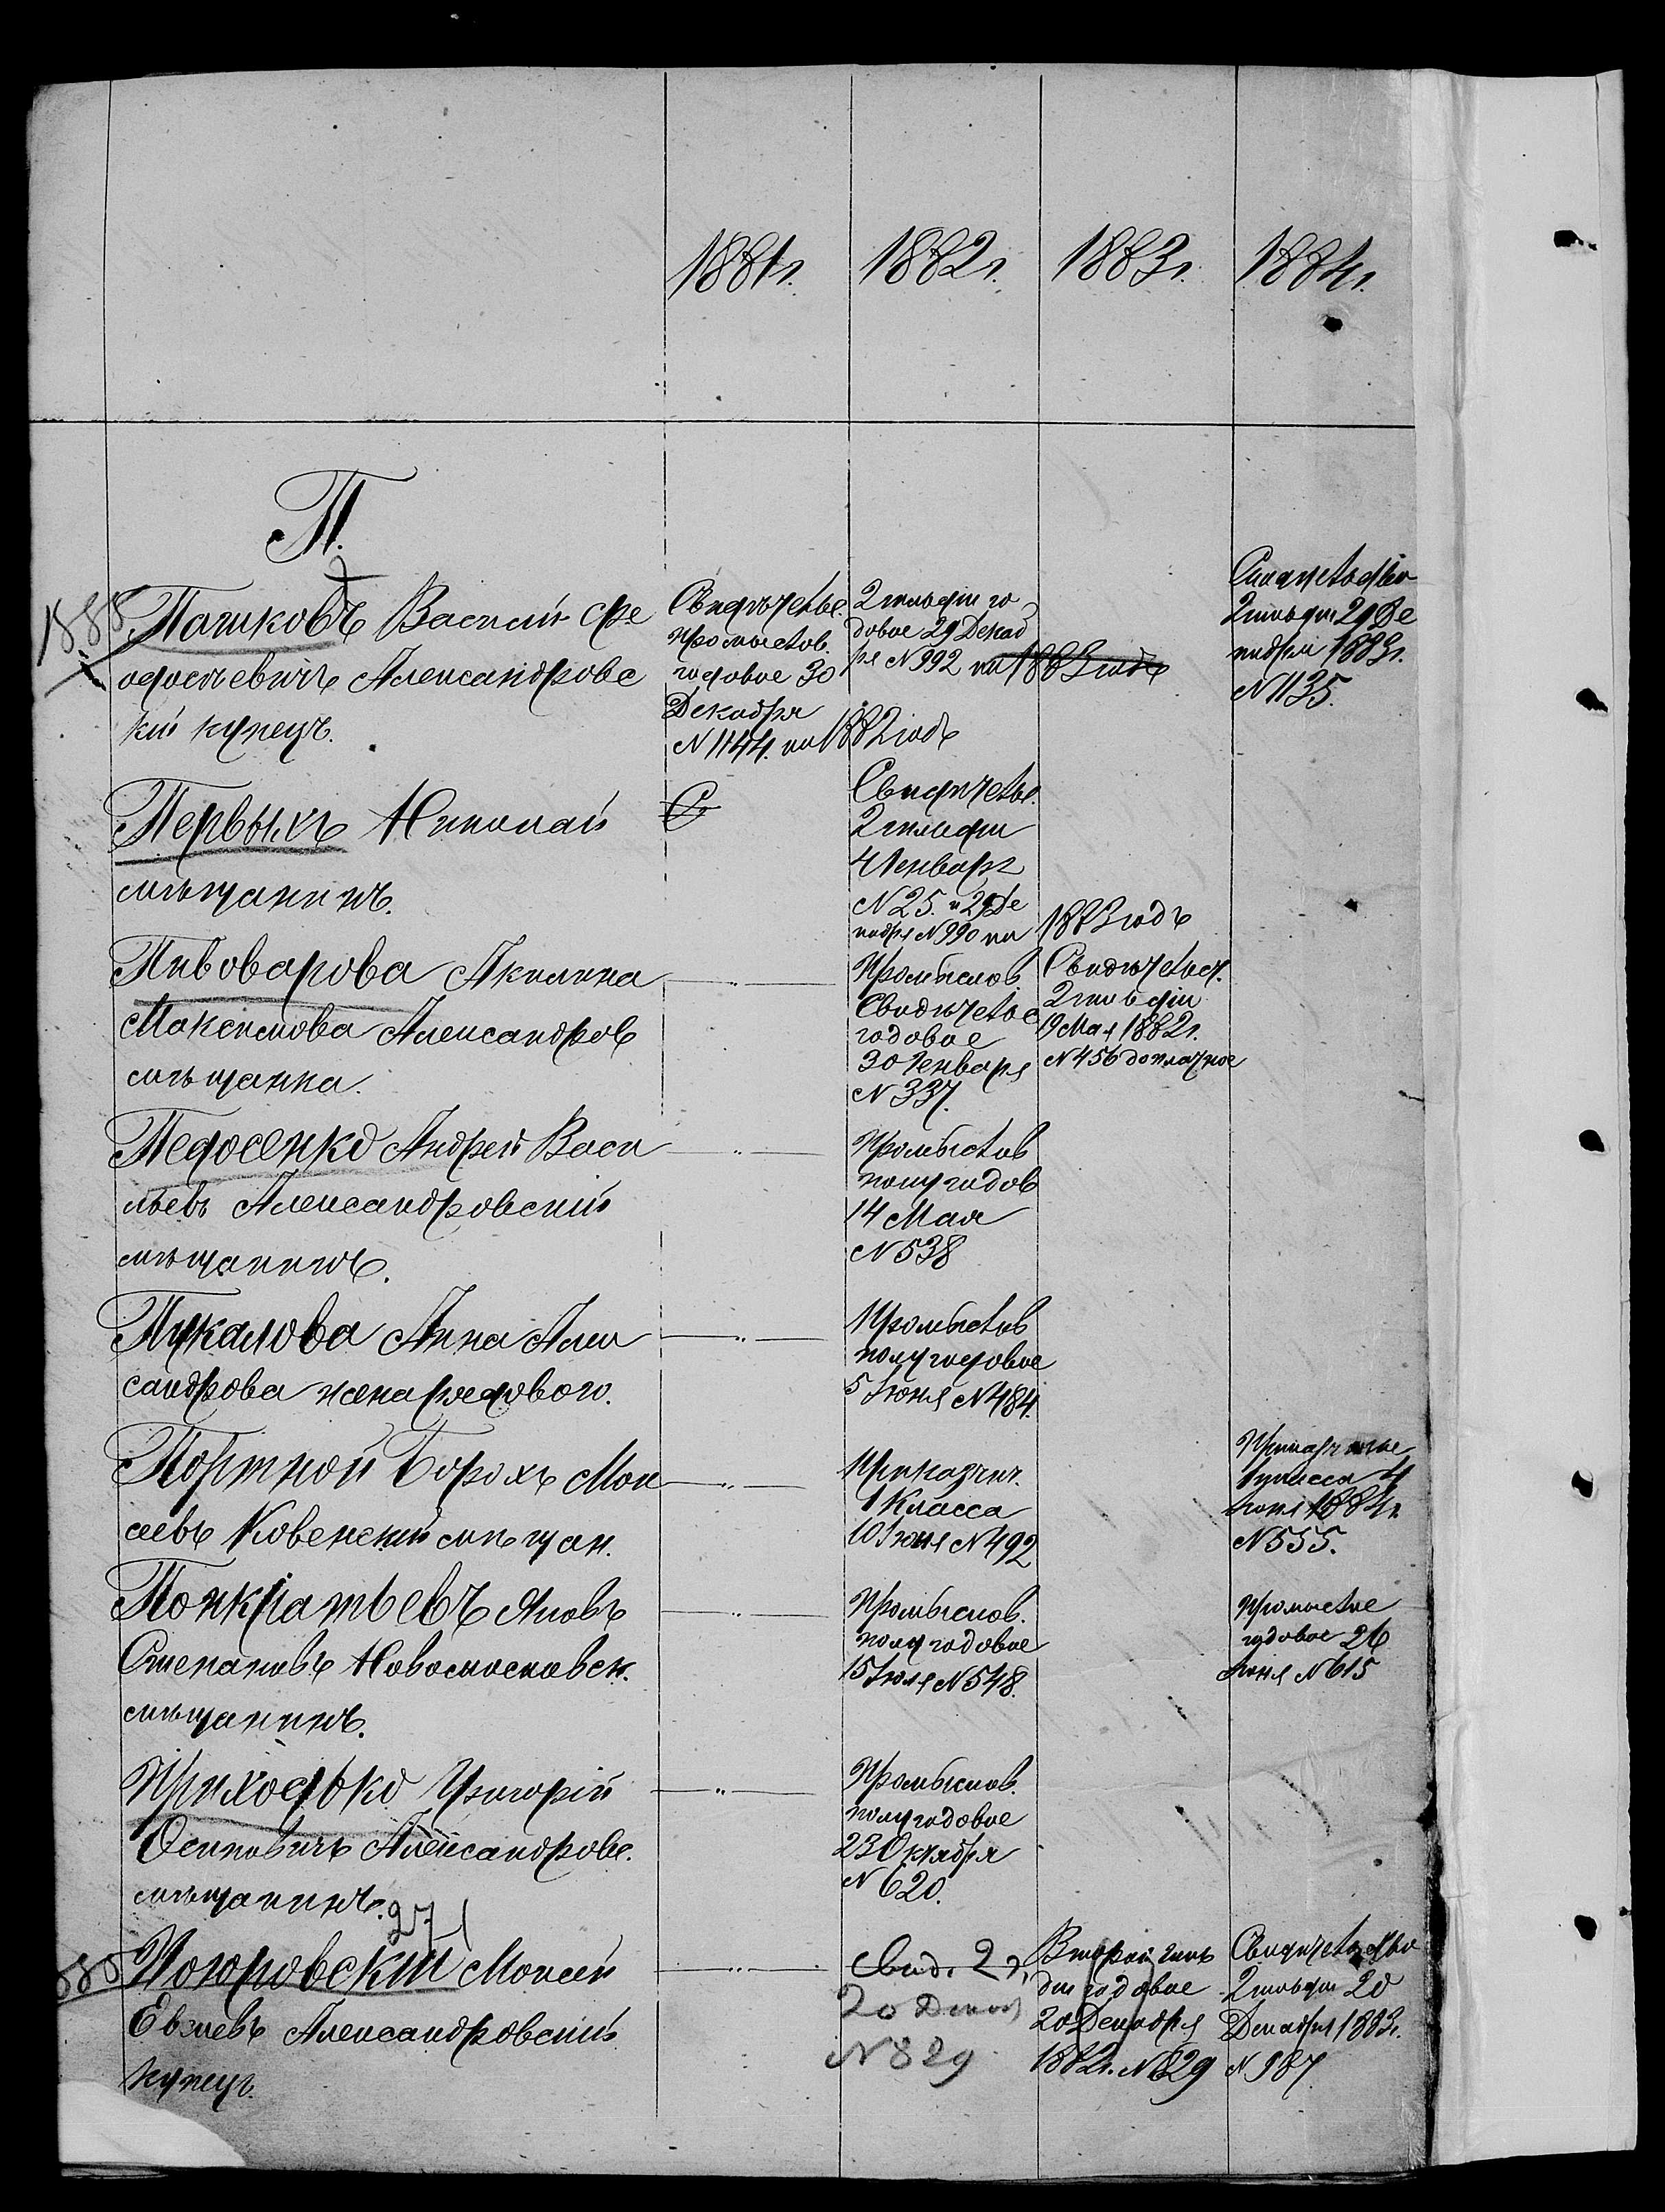 1881г. 1882г. 1883г. 1884г.
П.
1888
Пашковъ Василій Ѳе
одосѣевичъ Александровс
кій купецъ.
Свидѣтел.
промыслов.
годовое 30
Декабря
N 1144. на 1882 годъ
2 гильдіи го
довое 29 Декаб
ря N 992 на 1883 годъ
Свидѣтельство
2 гильдіи 29 Де
кабря 1883г.
N 1135.
Первыхъ Николай
мѣщанинъ.
С
Свидѣтел.
2 гильдіи
4 Генваря
N 25. и 29 Де
кабря N 990 на
1883 годъ
Пивоварова Акилина
Максимова Александров
мѣщанка.
Промыслов.
Свидѣтел.
годовое
30 Генваря
N 337.
Свидѣтельст.
2 гильдіи
19 Мая 1882г.
N 456 доплачное
Педосенко Андрей Васи
льевъ Александровскій
мѣщанинъ.
Промыслов
полугодов
14 Мая
N 538
Пукалова Анна Алек
сандрова жена рядового.
Промыслов
полугодовое
5 Іюня N 484.
Портной Борохъ Мои
сеевъ Ковенскій мѣщан.
Приказчич.
1 Класса
10 Іюня N 492
Приказчичье
1 класса 4
Іюня 1884г.
N 555.
Понкратьевъ Яковъ
Степановъ Новомосковск.
мѣщанинъ.
Промыслов.
полугодовое
15 Іюля N 548.
Промыслов
годовое 26
Іюня N 615
Приходько Григорій
Осиповичъ Александровс.
мѣщанинъ.
Промыслов.
полугодовое
23 Октября
N 620.
271
885
Погоровскій Моисей
Евелевъ Александровскій
купецъ.
Свид. 2 г.
20 Декаб
N 829
Второй гиль
діи годовое
20 Декабря
1882г. N 829
Свидѣтельство
2 гильдіи 20
Декабря 1883г.
N 987